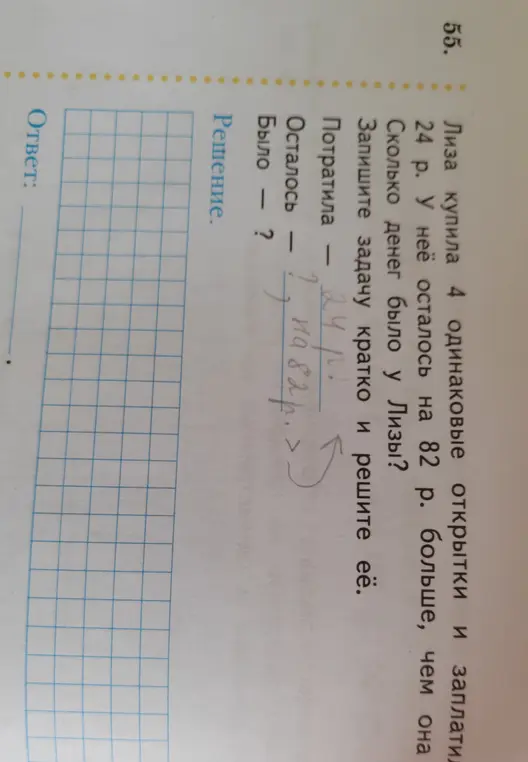 55. Лиза купила 4 одинаковые открытки и заплатил
24 р. У неё осталось на 82 р. больше, чем она
Сколько денег было у Лизы?
Запишите задачу кратко и решите её.
Потратила — 24 р.
Осталось — ?, на 82 р. >
Было — ?
Решение.
Ответ: .